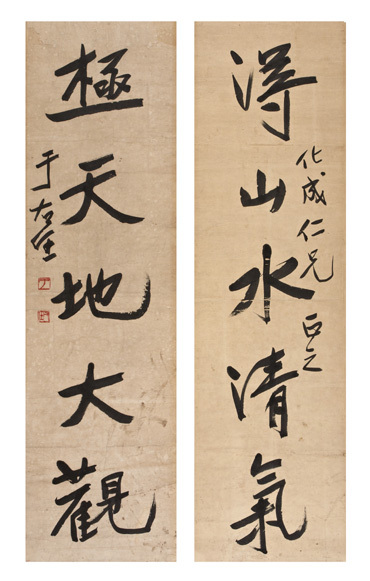 化成仁兄正之
得山水清氣
極天地大觀
于右任